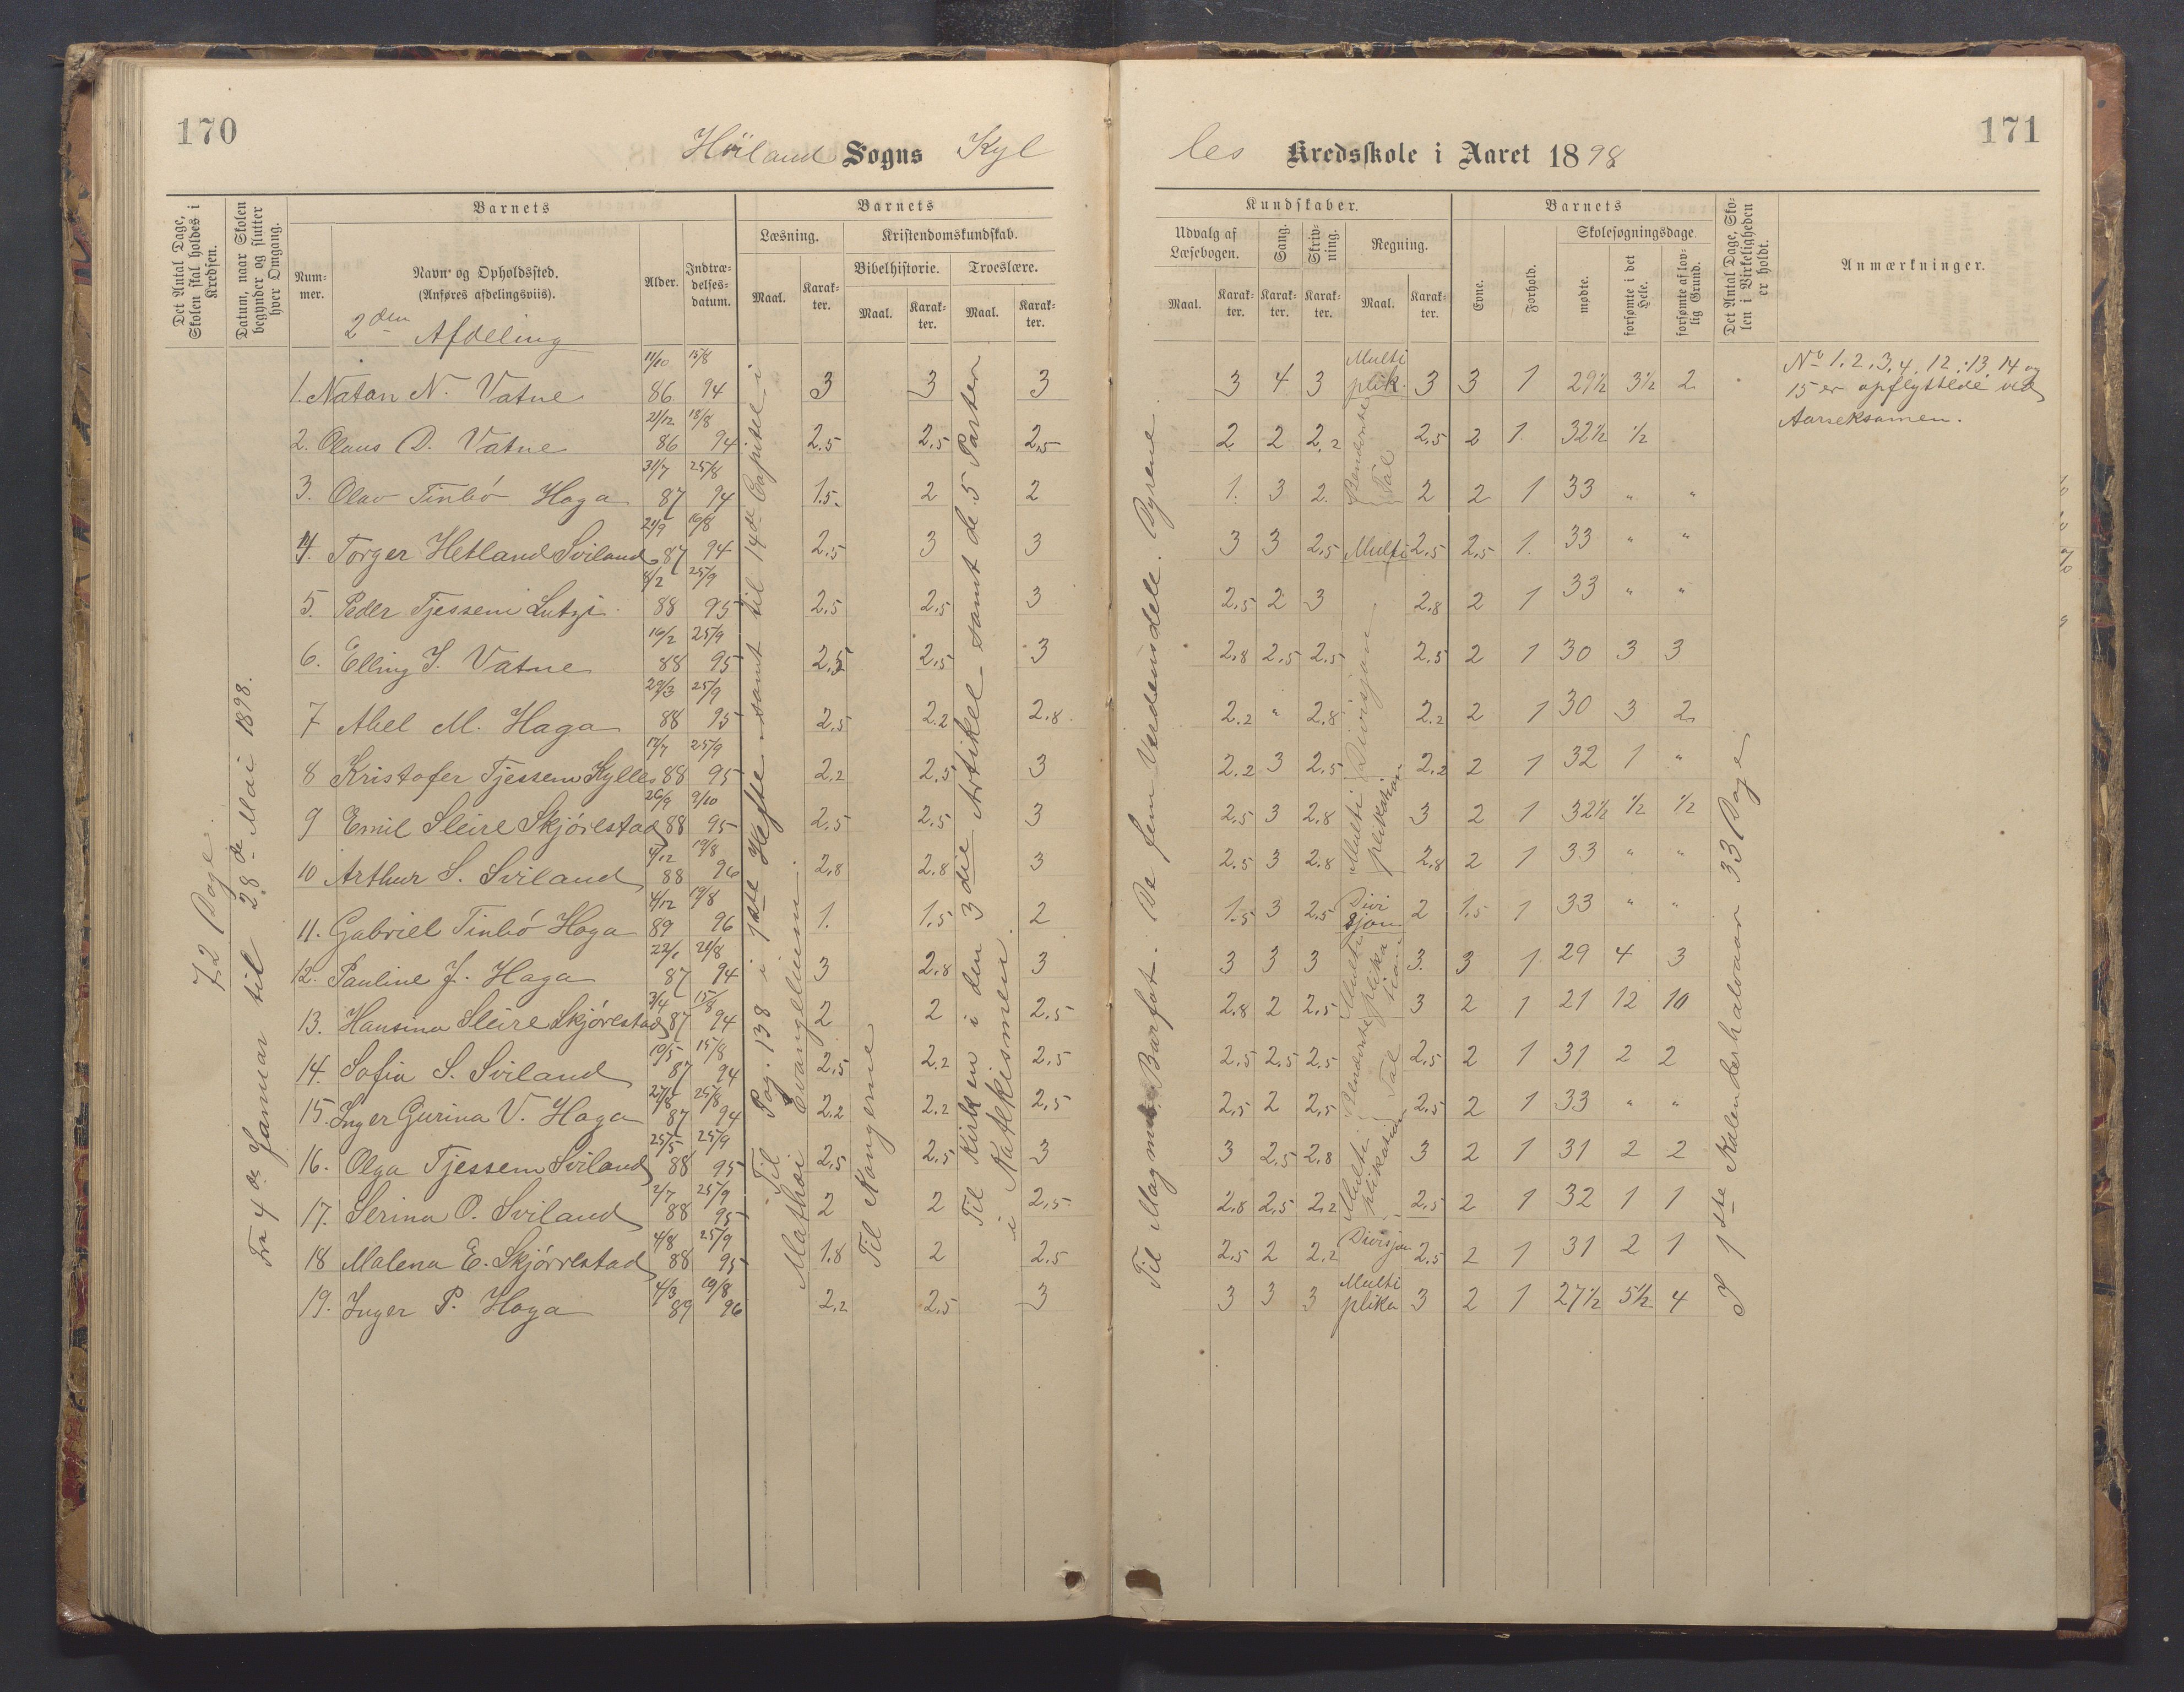 170
Höiland Sogns Kyl
les Kredsskole i Aaret 1898
171
Det Antal Dage, Skolen skal holdes i Kredsen.
Datum, naar Skolen begynder og slutter hver Omgang.
Barnets
Nummer.
Navn og Opholdssted.
(Anføres afdelingsviis).
Alder.
Indtrædelsesdatum.
Barnets
Læsning.
Maal.
Karakter.
Kristendomskundskab.
Bibelhistorie.
Maal.
Karakter.
Troeslære.
Maal.
Karakter.
Kundskaber.
Udvalg af Læsebogen.
Maal.
Karakter.
Sang.
Karakter.
Skrivning.
Karakter.
Regning.
Maal.
Karakter.
Barnets
Evne.
Forhold.
Skolesøgningsdage.
mødte.
forsømte i det Hele.
forsømte af lovlig Grund.
Det Antal Dage, Skolen i Virkeligheden er holdt.
Anmærkninger.
2den Afdeling
72 Dage.
Fra 4de Januar til 28de Mai 1898.
Til Pag. 138 i 1ste Hefte samt til 14de Capitel i
Mathæi Evangelium.
Til Kongerne
Til Kirken i den 3die Artikel samt de 5 Parter
i Katekismen.
Til Magnus Barfot. De fem Verdensdele. Dyrene.
I 1ste Kalenderhalvaar 33 Dage
1. Natan N. Vatne 11/10 86 15/8 94 3 3 3 3 4 3 Multiplik. 3 3 1 29½ 3½ 2
2. Olaus D. Vatne 21/12 86 18/8 94 2.5 2.5 2.5 2 2 2.2 Benævnte Tal 2.5 2 1 32½ ½
3. Olav Tinbö Haga 31/7 87 25/8 94 1.5 2 2 1. 3 2. 2 2 1 33 " "
4. Torger Hetland Sviland 21/9 87 16/8 94 2.5 3 3 3 3 2.5 Multi 2.5 2.5 1. 33 " "
5. Peder Tjessem Lutsi 8/2 88 25/9 95 2.5 2.5 3 2.5 2 3 2.8 2 1 33 " "
6. Elling I. Vatne 16/2 88 25/9 95 2.5 2.5 3 2.8 2.5 2.5 Divisjon 2.5 2 1 30 3 3
7 Abel M. Haga 29/3 88 25/9 95 2.5 2.2 2.8 2.2 " 2.8 2.2 2 1 30 3 2
8 Kristofer Tjessem Kylles 17/7 88 25/9 95 2.2 2.5 3 2.2 3 2.5 2.2 2 1 32 1 "
9 Emil Sleire Skjörestad 26/9 88 9/10 95 2.5 2.5 3 2.5 3 2.8 Multiplikation 3 2 1 32½ ½ ½
10 Arthur S. Sviland 4/12 88 19/8 96 2.8 2.8 3 2.5 3 2.8 2.8 2 1 33 " "
11. Gabriel Tinbö Haga 4/12 89 19/8 96 1. 1.5 2 1.5 3 2.5 Divisjon 2 1.5 1 33 " "
12. Pauline J. Haga 22/1 87 21/8 94 3 2.8 3 3 3 3 Multiplikation 3. 3 1 29 4 3
13. Hansina Sleire Skjörestad 3/4 87 15/8 94 2 2 2.5 2.8 2 2.5 3 2 1 21 12 10
14. Sofia S. Sviland 19/5 87 15/8 94 2.5 2.2 2.5 2.5 2.5 2.5 Benævnte Tal 2.5 2 1 31 2 2
15. Inger Gurina V. Haga 27/8 87 25/8 94 2.2 2.2 2.5 2.5 2 2.5 2.5 2 1 33 " "
16. Olga Tjessem Sviland 25/5 88 25/9 95 2.5 2.5 3 3 2.5 2.8 Multiplikation 3 2 1 31 2 2
17. Serina O. Sviland 2/7 88 25/9 95 2 2 2.5 2.8 2.5 2.2 2.5 2 1 32 1 1
18 Malena E. Skjörrestad 4/8 88 25/9 95 1.8 2 2.5 2.5 2 2.2 Divisjon 2.5 2 1 31 2 1
19. Inger P. Haga 4/3 89 19/8 96 2.2 2.5 3 3 3 3 Multiplika 3 2 1 27½ 5½ 4
No 1. 2. 3. 4. 12. 13. 14 og
15 er opflyttede ved
Aarseksamen.